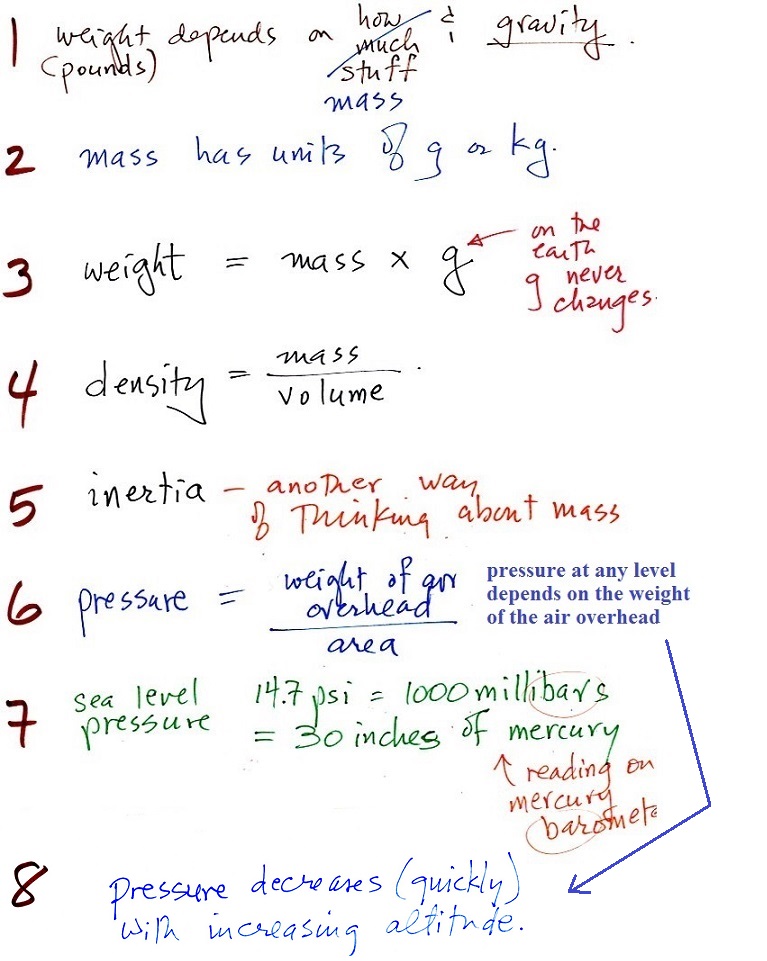 1 weight depends on how & gravity.
(pounds) much
stuff
mass
2 mass has units of g or kg.
3 weight = mass x g ← on the
earth
g never
changes.
4 density = mass
volume
5 inertia – another way
of Thinking about mass
6 pressure = weight of air
overhead
area
pressure at any level
depends on the weight
of the air overhead
7 sea level 14.7 psi = 1000 millibars
pressure = 30 inches of mercury
↑ reading on
mercury
baromete
8 pressure decreases (quickly)
with increasing altitude.